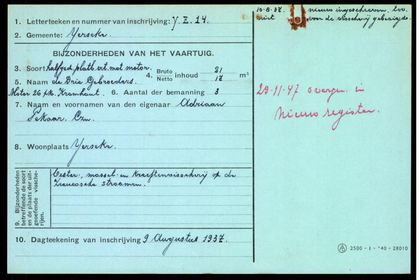 1. Letterteeken en nummer van inschrijving: Y.E. 14.
2. Gemeente: Yerseke.
BIJZONDERHEDEN VAN HET VAARTUIG.
3. Soort halfged. platb. vrt. met motor. 4. Bruto Netto inhoud 21
5. Naam de Drie Gebroeders.
Motor 26 pk. Kromhout. 6. Aantal der bemanning 3
7. Naam en voornamen van den eigenaar Adriaan
8. Woonplaats Yerseke.
9. Bijzonderheden betreffende de soort en de plaats der uitgeoefende visscherijen.
Oester, mossel en kreeftenvisscherij op de
Zeeuwsche stroomen.
10. Dagteekening van inschrijving 9 Augustus 1937.
nieuw ingeschreven,
voor de visscherij gebezigd.
29-11-47 overgen. in
nieuw register.
2500 - I - '40 - 28010